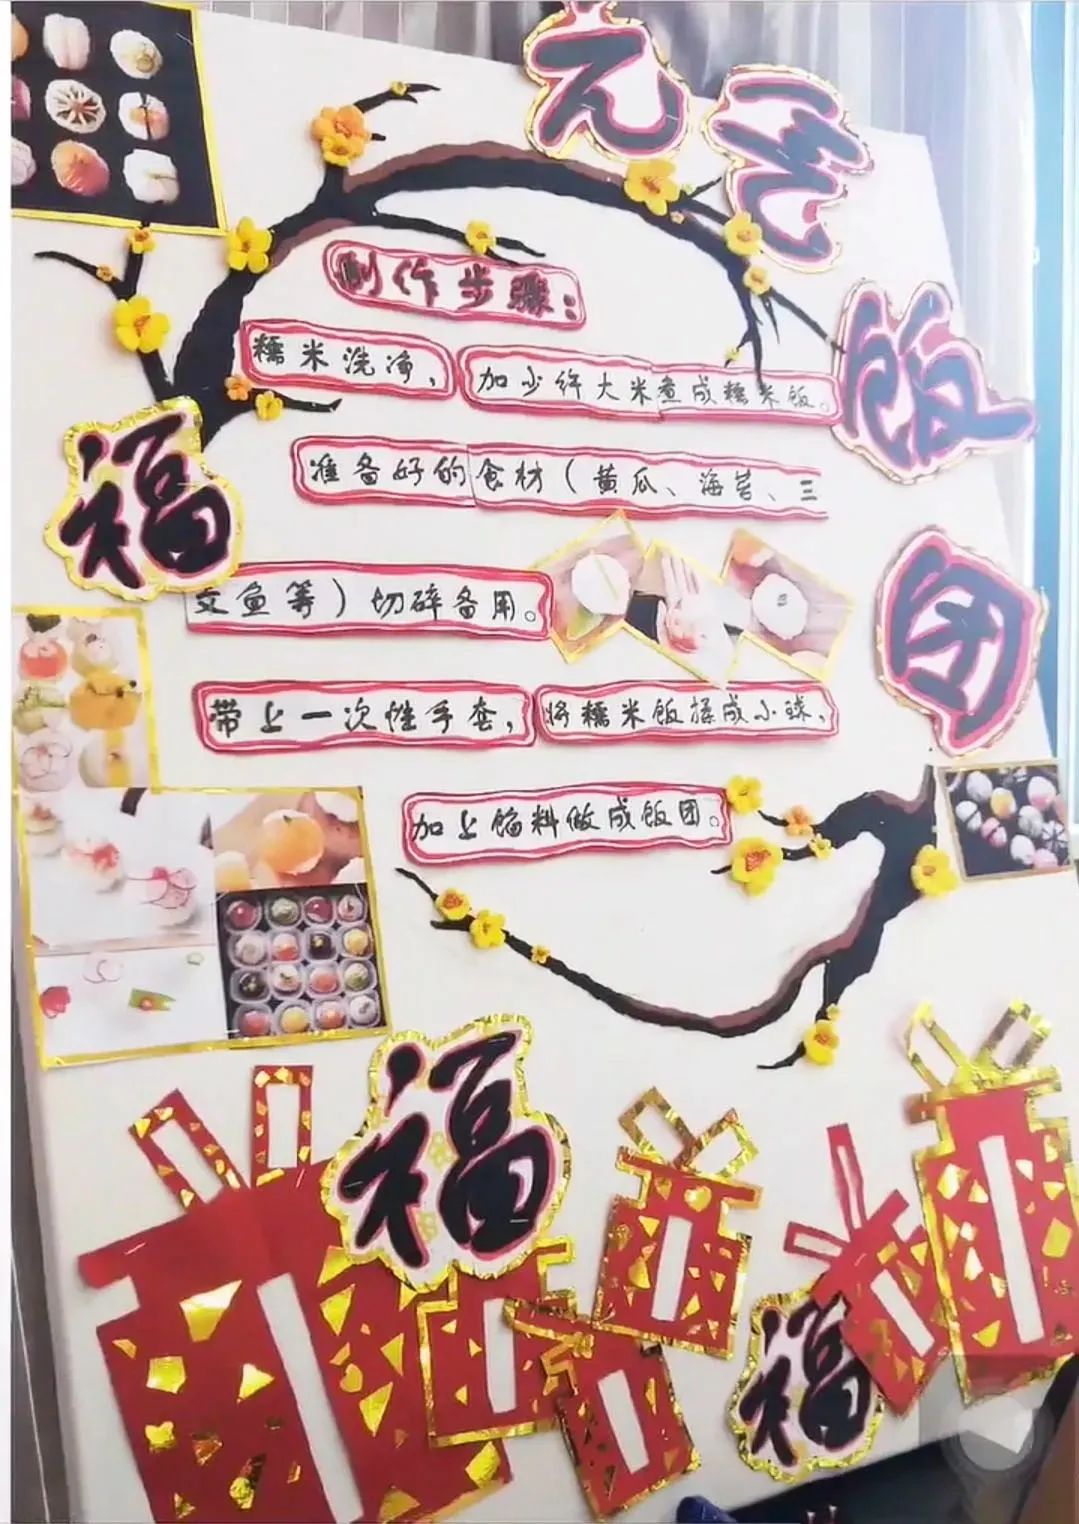 元气饭团
制作步骤：
糯米洗净，加少许大米煮成糯米饭。
准备好的食材（黄瓜、海苔、三
文鱼等）切碎备用。
带上一次性手套，将糯米饭揉成小球，
加上馅料做成饭团。
福
福
福